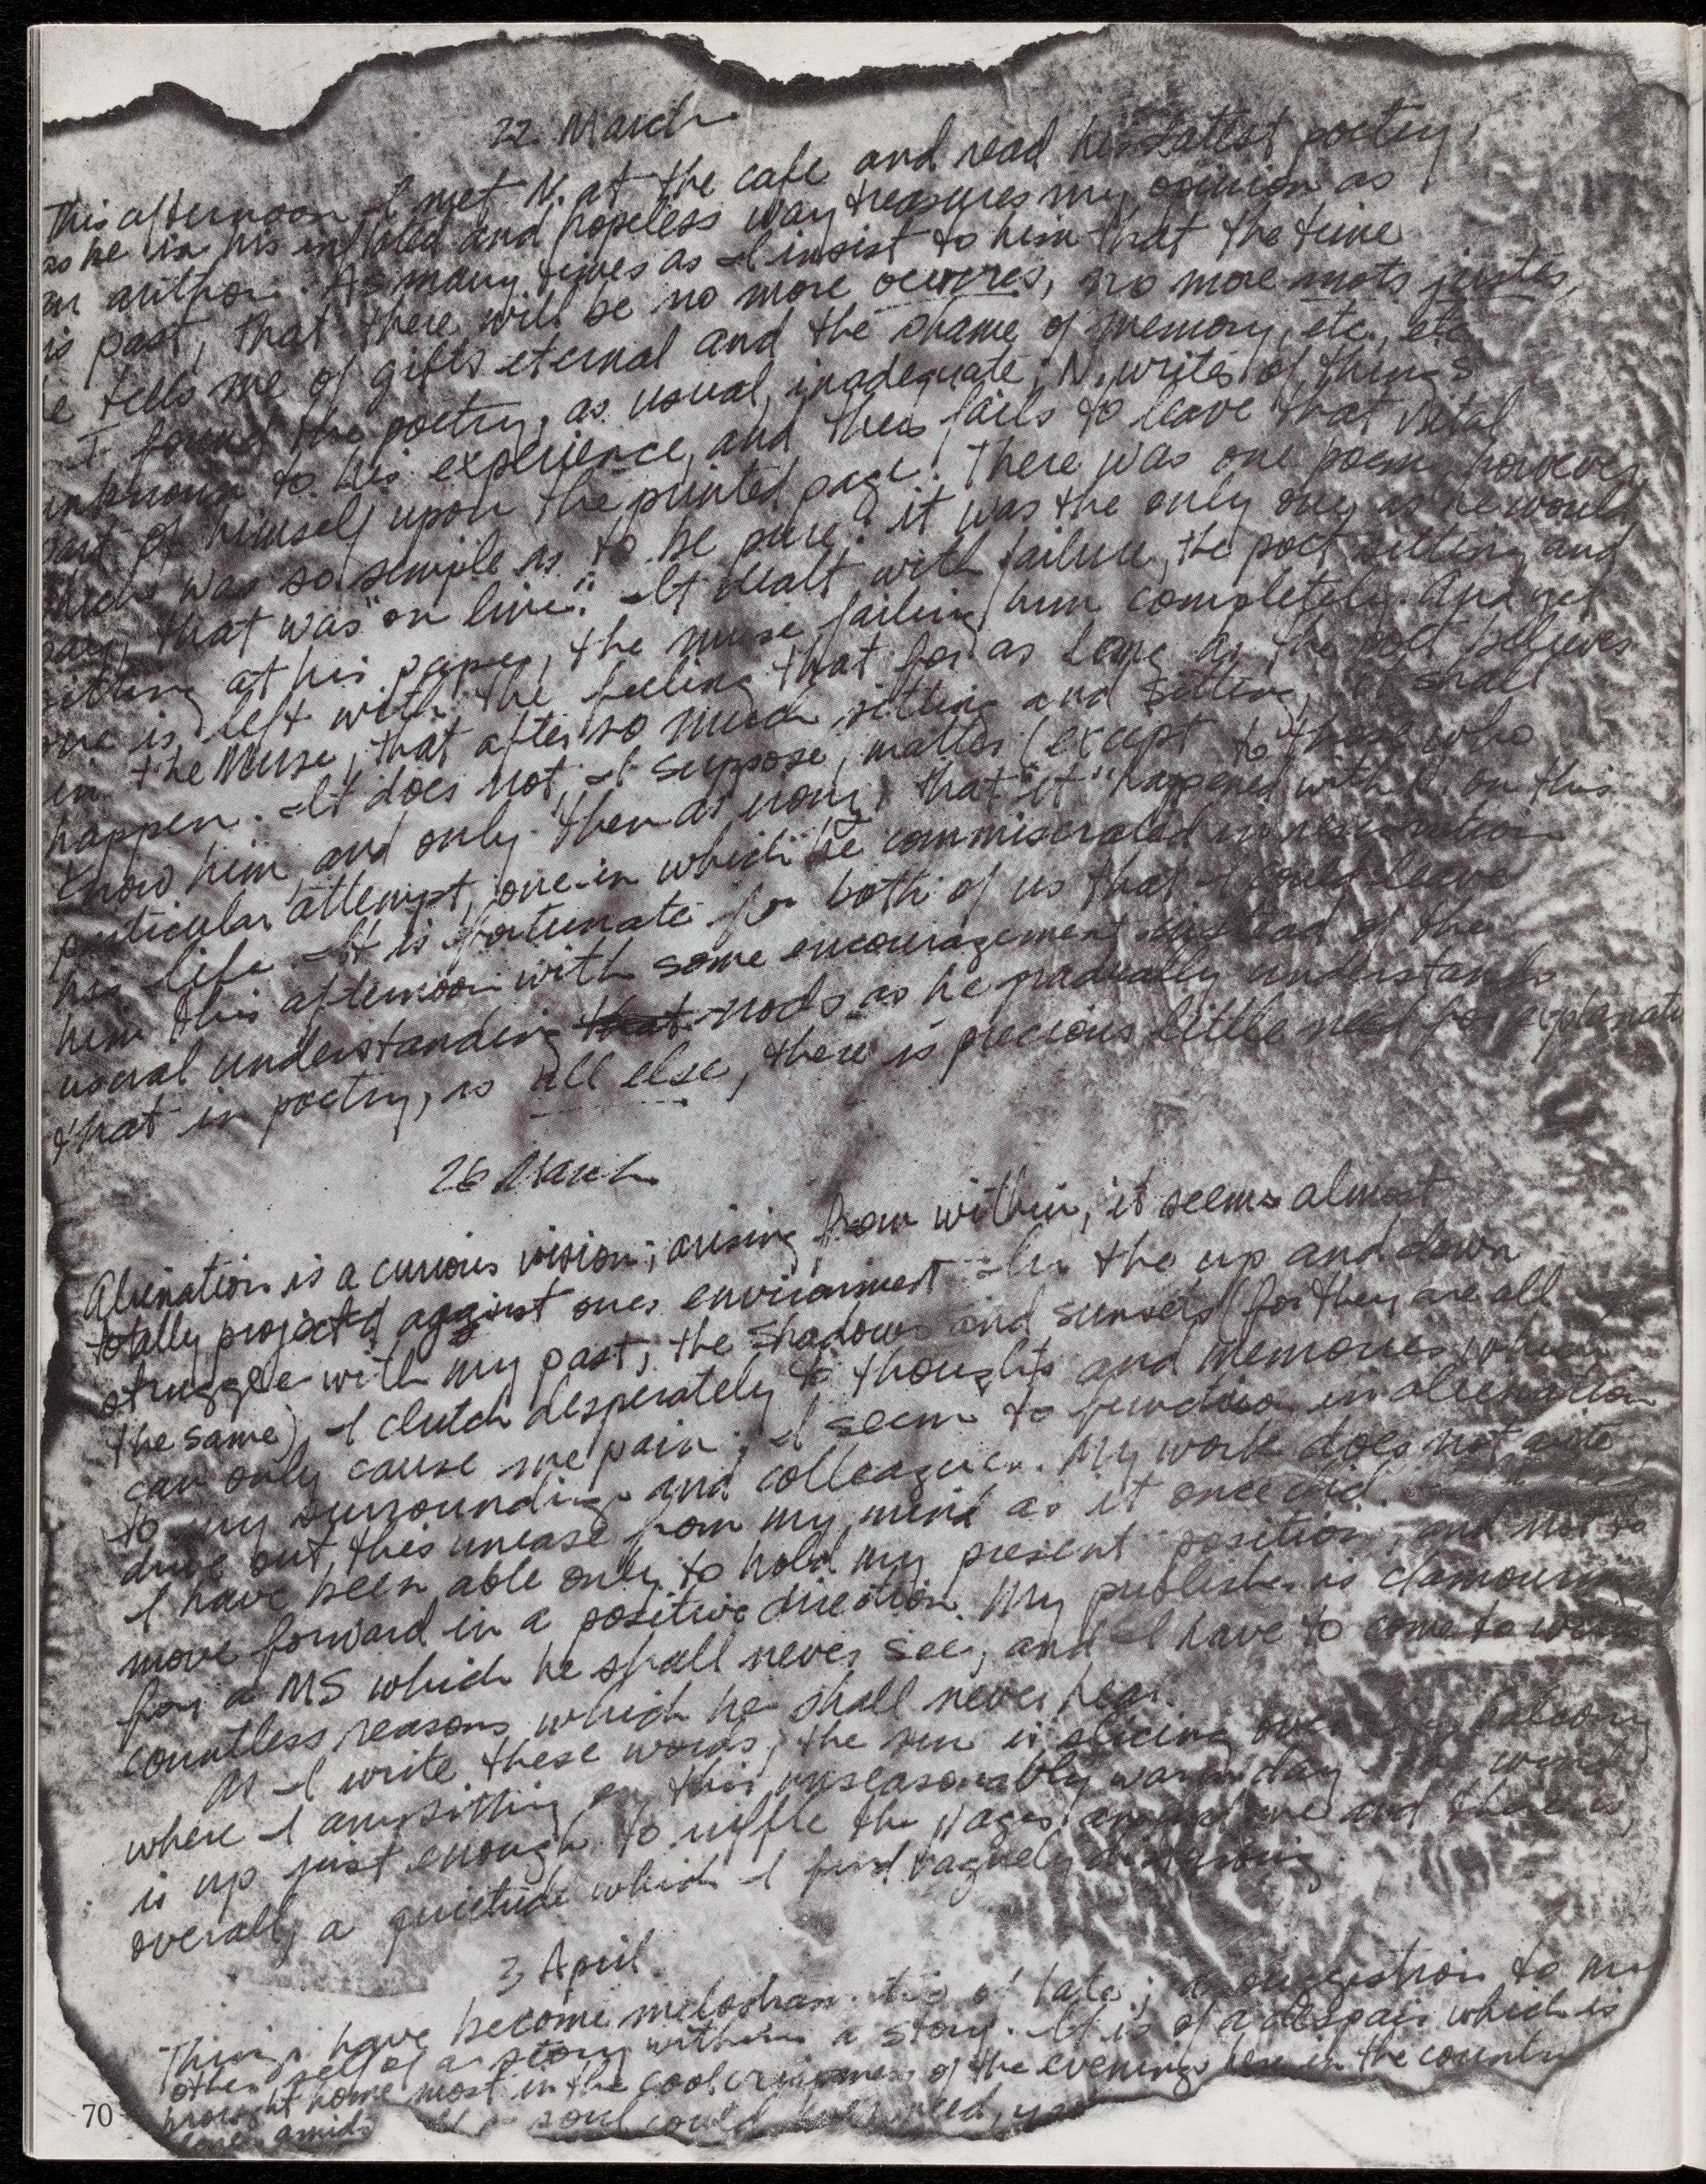 22 March
This afternoon I met N. at the cafe and read his latest poetry,
as he in his inflated and hopeless way treasures my opinion as
an author. As many times as I insist to him that the time
is past, that there will be no more oeuvres, no more mots justes,
e tells me of gifts eternal and the shame of memory, etc., etc.
I found the poetry, as usual, inadequate; N. writes of things
unknown to his experience, and thus fails to leave that vital
part of himself upon the printed page. There was one poem, however,
which was so simple as to be pure: it was the only one, as he would
say, that was "on line." It dealt with failure, the poet sitting and
sitting at his paper, the muse failing him completely. And yet
one is left with the feeling that for as long as the poet believes
in the Muse, that after so much sitting and sitting, it shall
happen. It does not, I suppose, matter (except to those who
know him and only then as irony) that "it" happened with N. on this
particular attempt, one in which he commiserated in
his life. It is fortunate for both of us that I could leave
him this afternoon with some encouragement instead of the
usual understanding that nods as he gradually understands
that in poetry, as all else, there is precious little need for explanati
26 March
Alienation is a curious vision; arising from within, it seems almost
totally projected against ones environment. In the up and down
struggle with my past, the shadows and sunsets (for they are all
the same), I clutch desperately to thoughts and memories which
can only cause me pain; I seem to function in alienation
to my surroundings and colleagues. My work does not quite
drive out this unease from my mind as it once did.
I have been able only to hold my present position, and not to
move forward in a positive direction. My publisher is clamouring
for a MS which he shall never see, and I have to come to
countless reasons which he shall never hear.
As I write these words, the sun is slicing over my balcony
where I am sitting on this unseasonably warm day. The wind
is up just enough to riffle the pages around me and there is,
overall, a quietude which I find vaguely
3 April
Things have become melodramatic of late; a suggestion to my
other self of a story within a story. It is of a despair which is
brought home most in the cool crispness of the evenings here in the country
amids soul could need,
70